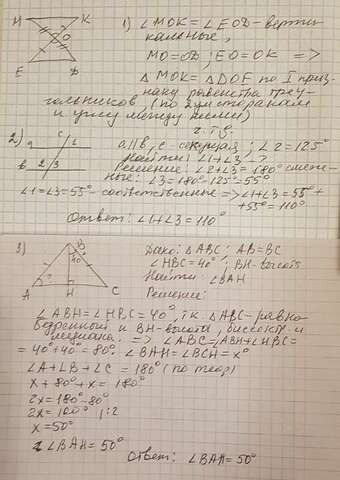 M K
O
E D
1) ∠MOK = ∠EOD - верти-
кальные,
MO = OD; EO = OK =>
△MOK = △DOE по I приз-
наку равенства треу-
гольников, (по 2 сторонам
и углу между ними)
ч.т.д.
2) a c 1
b 2 3
a||b, c - секущая; ∠2 = 125°
Найти: ∠1+∠3 - ?
Решение: ∠2+∠3 = 180° - смеж-
ные; ∠3 = 180° - 125° = 55°
∠1 = ∠3 = 55° - соответственные => ∠1+∠3 = 55° +
+ 55° = 110°
Ответ: ∠1+∠3 = 110°
3) B
40
A ? H C
Дано: △ABC; AB = BC
∠HBC = 40°; BH - высота
Найти: ∠BAH
Решение:
∠ABH = ∠HBC = 40°, т.к. △ABC - равно-
бедренный и BH - высота, биссектр. и
медиана. => ∠ABC = ∠ABH + ∠HBC =
= 40° + 40° = 80°. ∠BAH = ∠BCH = x°
∠A + ∠B + ∠C = 180° (по теор)
x + 80° + x = 180°
2x = 180° - 80°
2x = 100° |:2
x = 50°
∠BAH = 50°
Ответ: ∠BAH = 50°